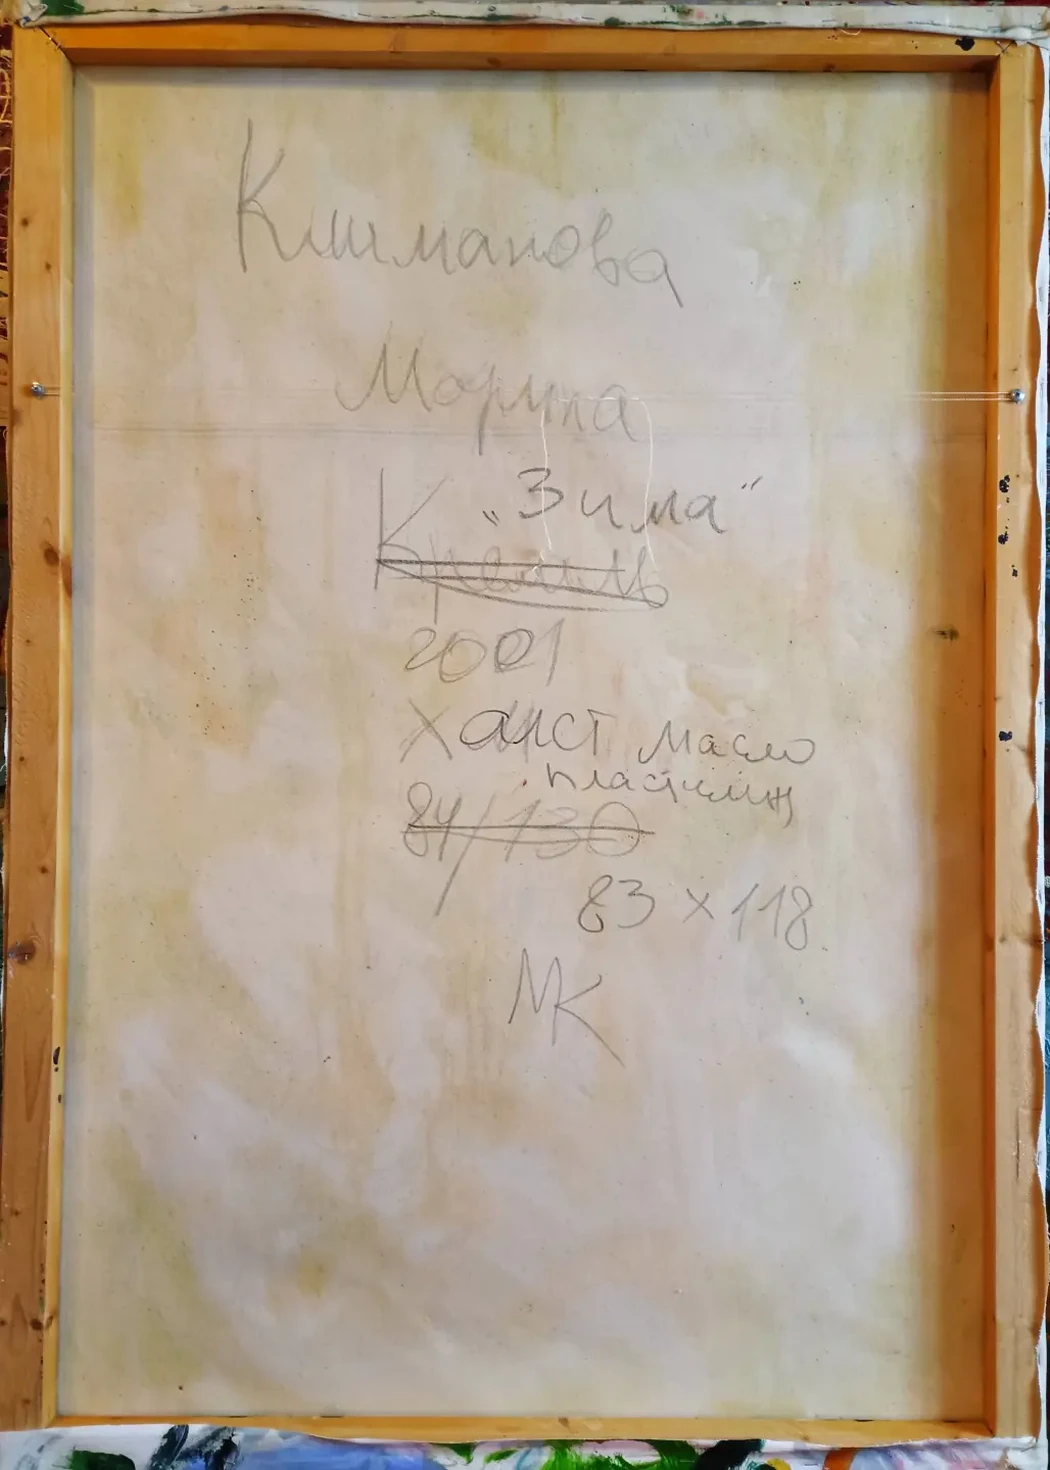 Климанова
Марина
„Зима”
Кремль
2001
Халст масло
пластилин
84/130
83 x 118.
МК